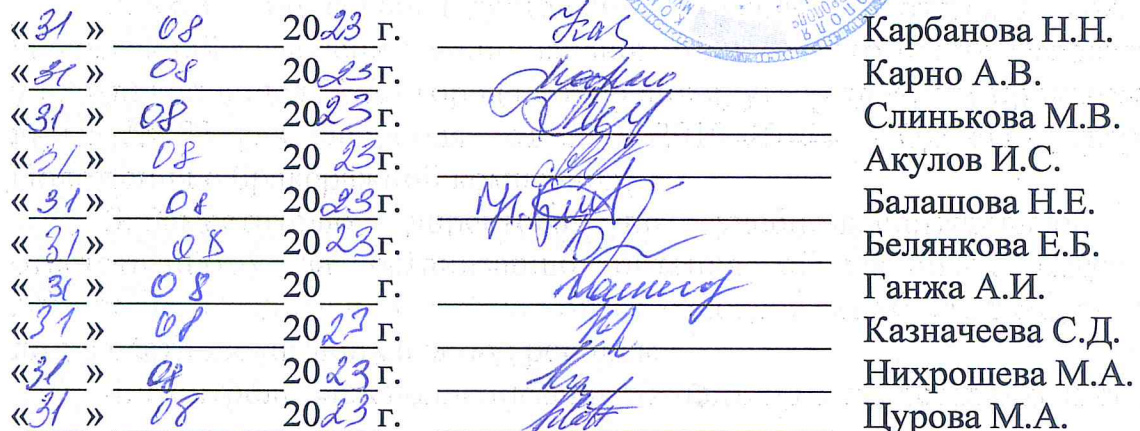 «31» 08 2023 г. Карбанова Н.Н.
«31» 08 2023 г. Карно А.В.
«31» 08 2023 г. Слинькова М.В.
«31» 08 2023 г. Акулов И.С.
«31» 08 2023 г. Балашова Н.Е.
«31» 08 2023 г. Белянкова Е.Б.
«31» 08 20 г. Ганжа А.И.
«31» 08 2023 г. Казначеева С.Д.
«31» 08 2023 г. Нихрошева М.А.
«31» 08 2023 г. Цурова М.А.